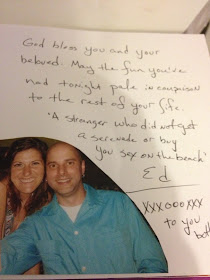 God bless you and your
beloved. May the fun you've
had tonight pale in comparison
to the rest of your life.
"A stranger who did not get
a serenade or buy
you sex on the beach"
Ed
XXXOOOXXX
to you
both